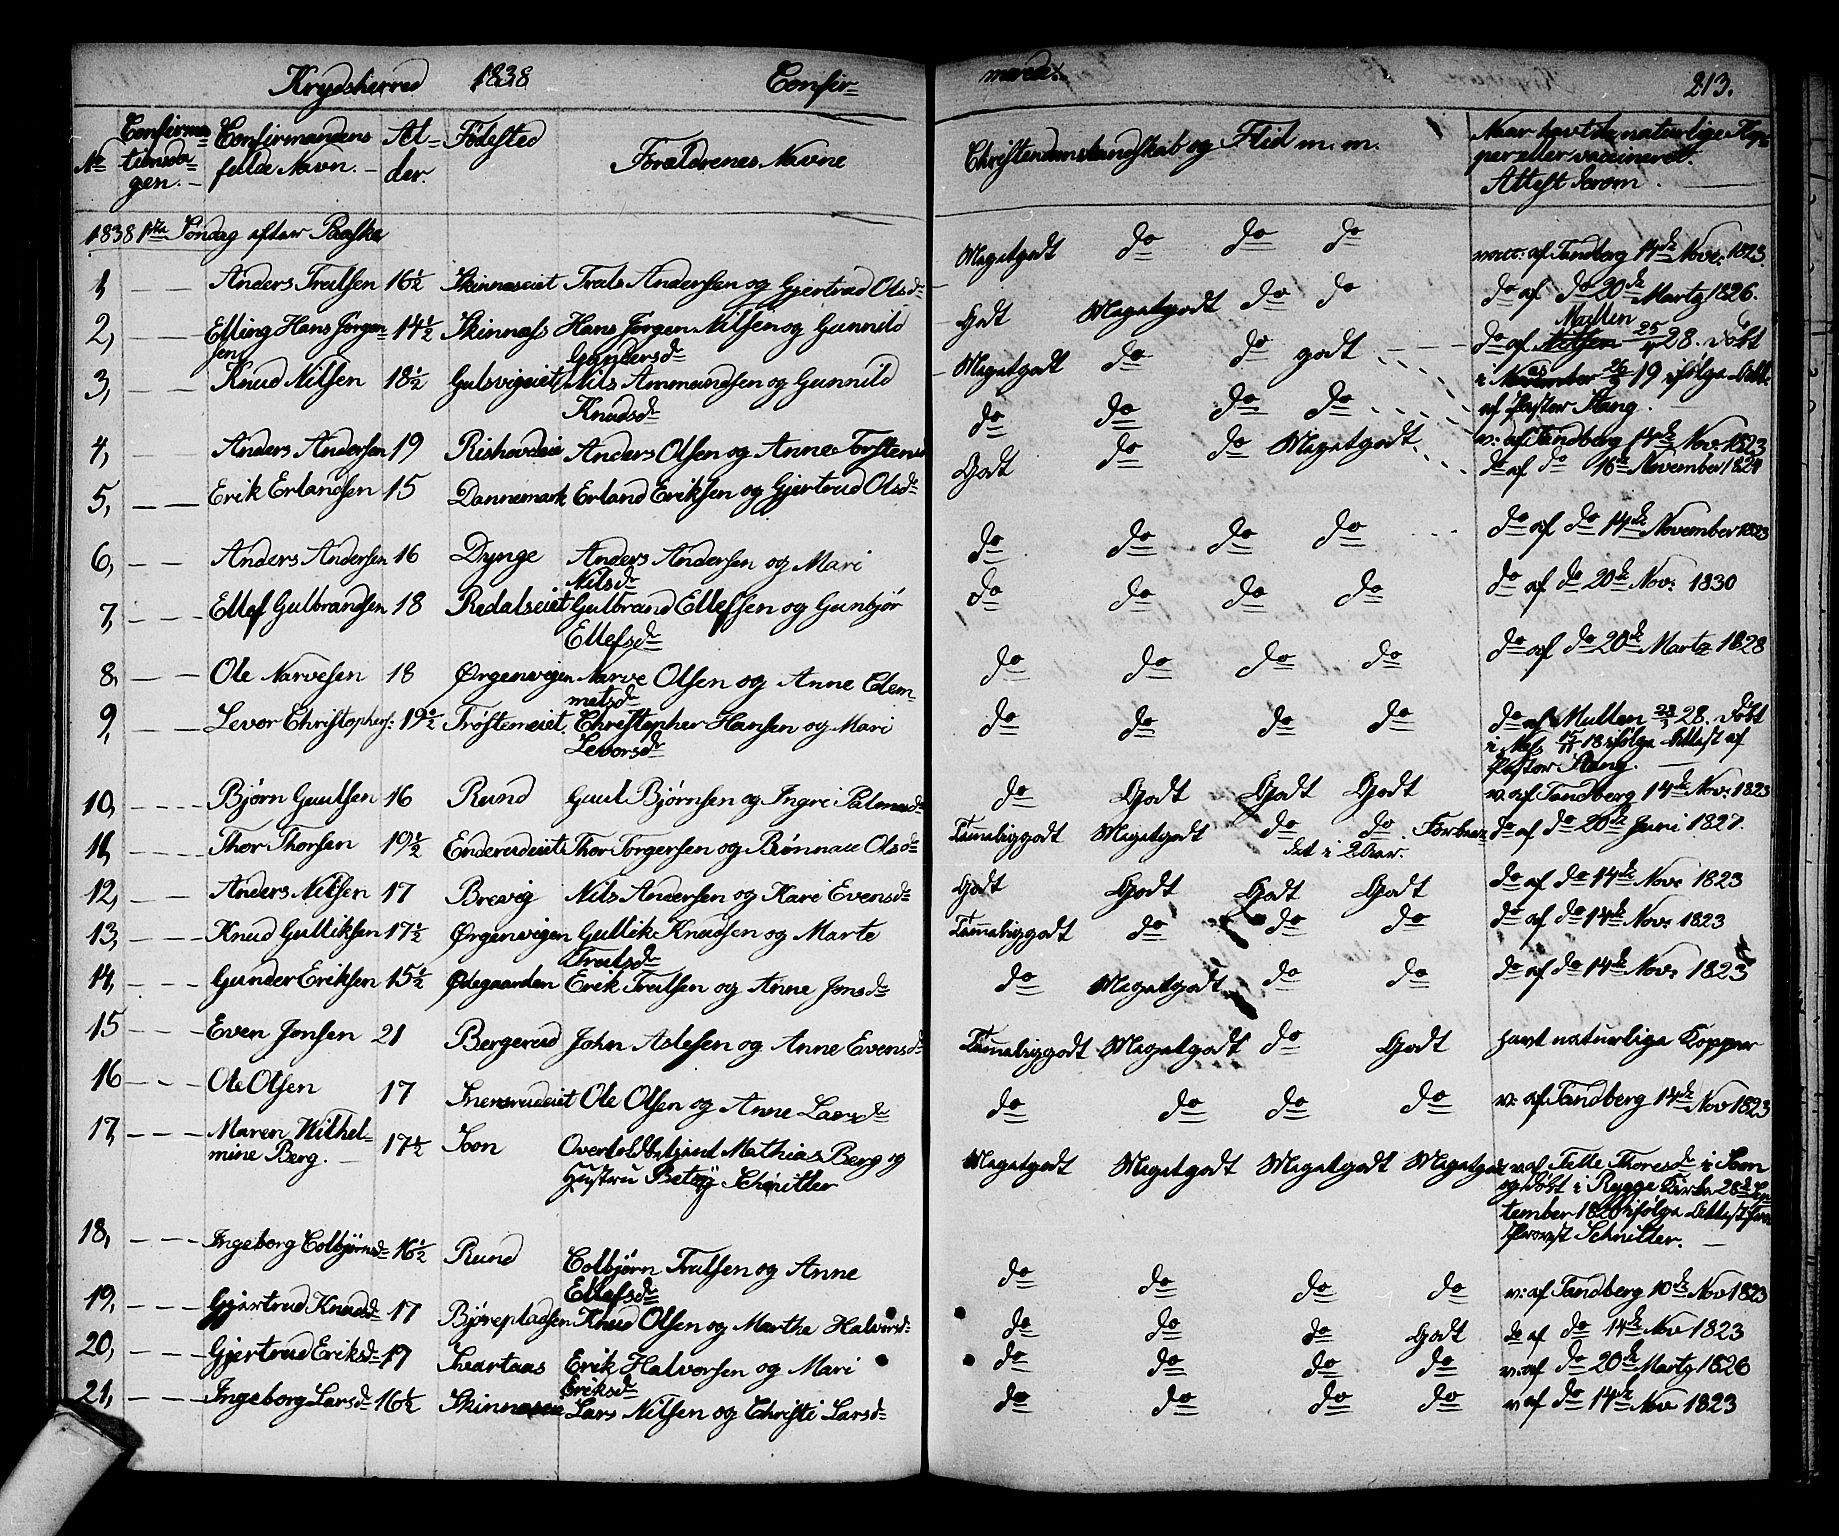 Krydsherred 1838 Confir=
merede. 213.
No Confirma=tionsda=gen. Confirmandens fulde Navn. Al=der. Fødested Forældrenes Navne
Christendomskundskab og Flid m. m. Naar havt de naturlige Kop=per eller vaccineret. Attest derom.
1838 1ste Søndag efter Paaske
1, Anders Trulsen 16½ Skinneseiet Truls Andersen og Gjertrud Olsdr
Megetgodt do do do vacc: af Tandberg 14de Nov: 1823
2, Elling Hans Jørgensen 14½ Skinnæss Hans Jørgen Nilsen og Gunnild Gundersdr
Godt Megetgodt do do do af do 20de Marts 1826.
3, Knud Nilsen 18½ Gulsvigeiet Nils Ammundsen og Gunnild Knudsdr
Megetgodt do do godt do af Mullen 25/4 28. døbt
i 26/ 19 ifølge Attest
af Pastor Stang.
4, Anders Andersen 19 Rishovdeie Anders Olsen og Anne Torstensd
do do do do v: af Tandberg 14de Nov: 1823
5, Erik Erlandsen 15 Dannemark Erland Eriksen og Gjertrud Olsdr
Godt do do Megetgodt do af do 16de November 1824
6, Anders Andersen 16 Dynge Anders Andersen og Mari Nilsdr
do do do do do af do 14de November 1823
7, Ellef Gulbrandsen 18 Redalseiet Gulbrand Ellefsen og Gunbjør Ellefsdr
do do do do do af do 20de Nov: 1830
8, Ole Narvesen 18 Ørgenvigen Narve Olsen og Anne Clem=metsdr
do do do do do af do 20de Marts 1828
9, Levor Christophers: 19½ Trøstemeiet Christopher Hansen og Mari Levorsdr
do do do do do af Mullen 28. døbt
i Næs 15/11 18 ifølge Attest af
Pastor Stang.
10, Bjørn Guulsen 16 Rund Guul Bjørnsen og Ingri Palmesdr
do Godt Godt Godt v. af Tandberg 14de Nov: 1823
11, Thor Thorsen 19½ Enderudeiet Thor Torgersen og Rønnau Olsdr
Temeliggodt Megetgodt do do Forbere=det i 2 Aar. do af do 20de Juni 1827.
12, Anders Nilsen 17 Brevig Nils Andersen og Kari Evensdr
Godt Godt Godt Godt do af do 14de Nov 1823
13, Knud Gulliksen 17½ Ørgenvigen Gullik Knudsen og Marte Trulsdr
Temeliggodt do do do do af do 14de Nov: 1823
14, Gunder Eriksen 15½ Ødegaarden Erik Trulsen og Anne Jonsdr
do Megetgodt do do do af do 14de Nov: 1823
15 Even Jonsen 21 Bergerud John Aslesen og Anne Evensdr
Temeliggodt Megetgodt do Godt havt naturlige Kopper
16 Ole Olsen 17 Ole Olsen og Anne Larsdr
do do do do v: af Tandberg 14de Nov 1823
17, Maren Wilhel=mine Berg. 17½ Soon Overtoldbetjent Mathias Berg og Hustru Betsy Schnitler
Megetgodt Megetgodt Megetgodt Megetgodt v: af Thoresdr i Soon
og døbt i Rygge Kirke 28de Sep=
tember 1820 ifølge Attest fra
Provst Schnitler.
18, Ingeborg Colbjørnsdr 16½ Rund Colbjørn Trulsen og Anne Ellefsdr
do do do do v: af Tandberg 10de Nov 1823
19, Gjertrud Knudsdr 17 Bjørepladsen Knud Olsen og Marthe Halvorsdr
do do do Godt do af do 14de Nov 1823
20, Gjertrud Eriksdr 17 Svartaas Erik Halvorsen og Mari Eriksdr
do do do do v: af do 20de Marts 1826
21, Ingeborg Larsdr 16½ Lars Nilsen og Christi Larsdr
do do do do v af do 14de Nov 1823